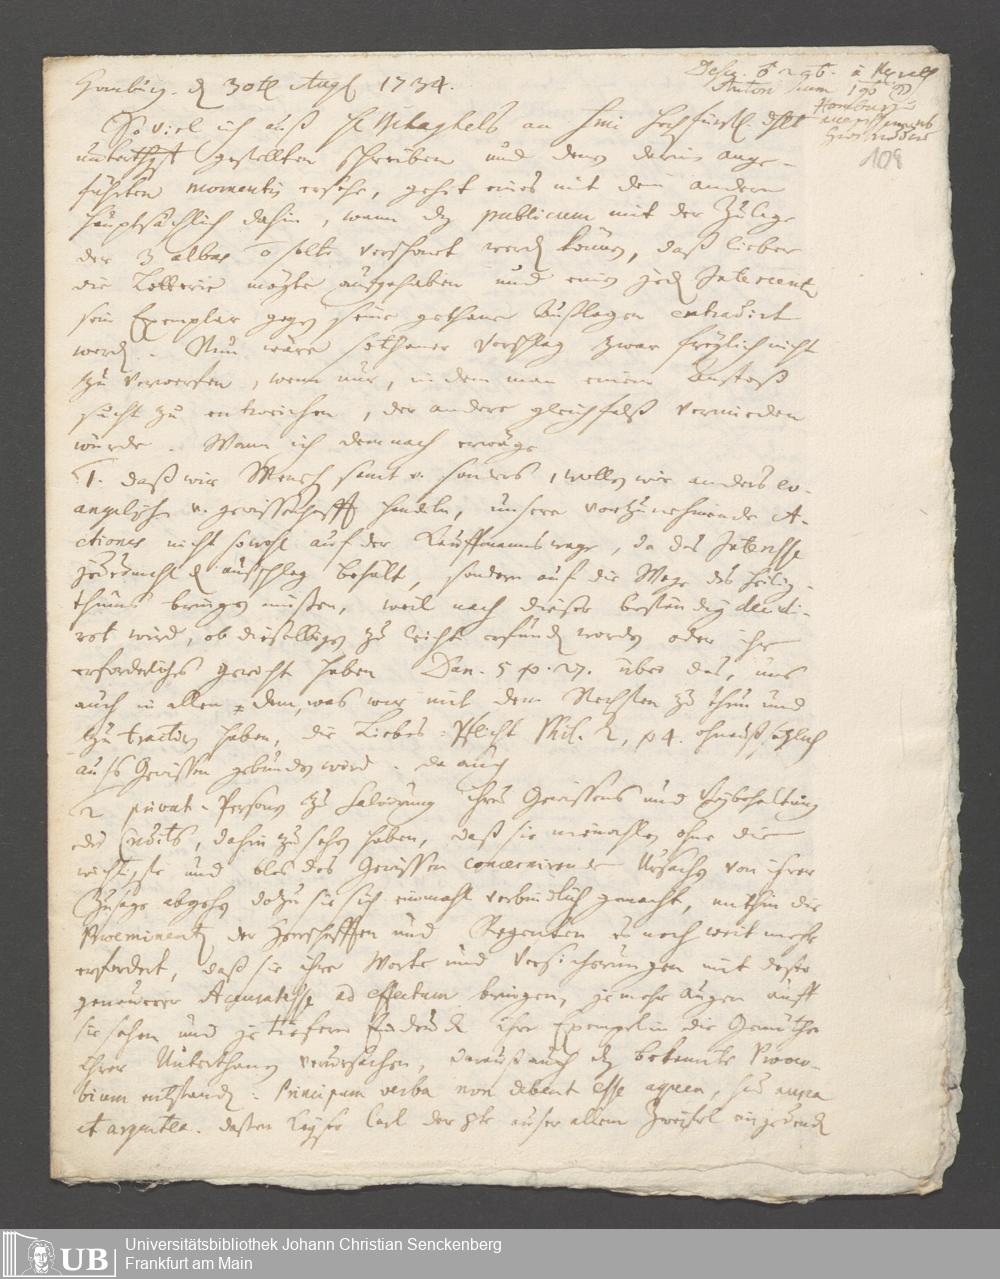 Homburg. d 30te Augl 1734.
109
So viel ich auß H. an Ihre Hochfürstl. Dhlt
unterthgst gestellten schreiben und denen darin ange-
führten momentis ersehe, gehet eines mit dem andern
hauptsächlich dahin, wann dz publicum mit der Zulage
der 3 albus solte verschont werden können, daß lieber
die Lotterie mögte aufgehoben und einem jeden Interessenten
sein Exemplar gegen seine gethane Auslagen extradirt
werden. Nun wäre sothaner Vorschlag zwar freylich nicht
zu verwerfen, wenn nur, in dem man einem Anstoß
sucht zu entweichen, der andere gleichfalß vermieden
würde. Wann ich demnach erwäge
1. daß wir Mensch samt u. sonders, wollen wir anders ev-
angelisch u. gewissenhafft handeln, unsere vorzunehmende A-
ctiones nicht sowohl auf der Kauffmannswage, da das Interesse
jedesmahl den ausschlag behält, sondern auf die Wage des Heilig-
thums bringen müßen, weil nach dieser beständig decidi-
ret wird, ob dieselbigen zu leicht erfunden worden oder ihr
erforderliches gewicht haben Dan. 5 p. 27. über das, uns
auch in allem dem, was wir mit dem Nechsten zu thun und
zu tractiren haben, die Liebes-Pflicht Phil. 2, p 4. ohnauß
aufs Gewissen gebunden wird. da auch
2 privat-Personen zu Salvirung ihres Gewissens und Beybehaltung
des Credits, dahin zu sehen haben, daß sie niemahlen ohne die
wichtigste und blos das Gewissen concernirende Ursachen von ihrer
Zusage abgehen dazu sie sich einmahl verbindlich gemacht, mithin die
Praeminentz der Herrschafften und Regenten es noch weit mehr
erfordert, daß sie ihre Worte und Versicherungen mit desto
genauerer Accuratesse ad effectum bringen, je mehr Augen auff
sie sehen und je tiefern Eindruck ihre Exempel in die Gemüther
ihrer Unterthanen verursachen, darauß auch dz bekannte Prover-
bium entstanden: Principum verba non debent esse aquea, sed aurea
et argentea. dessen Kayser Carl der 5te außer allem Zweifel eingedenck
Universitätsbibliothek Johann Christian Senckenberg
Frankfurt am Main
UB